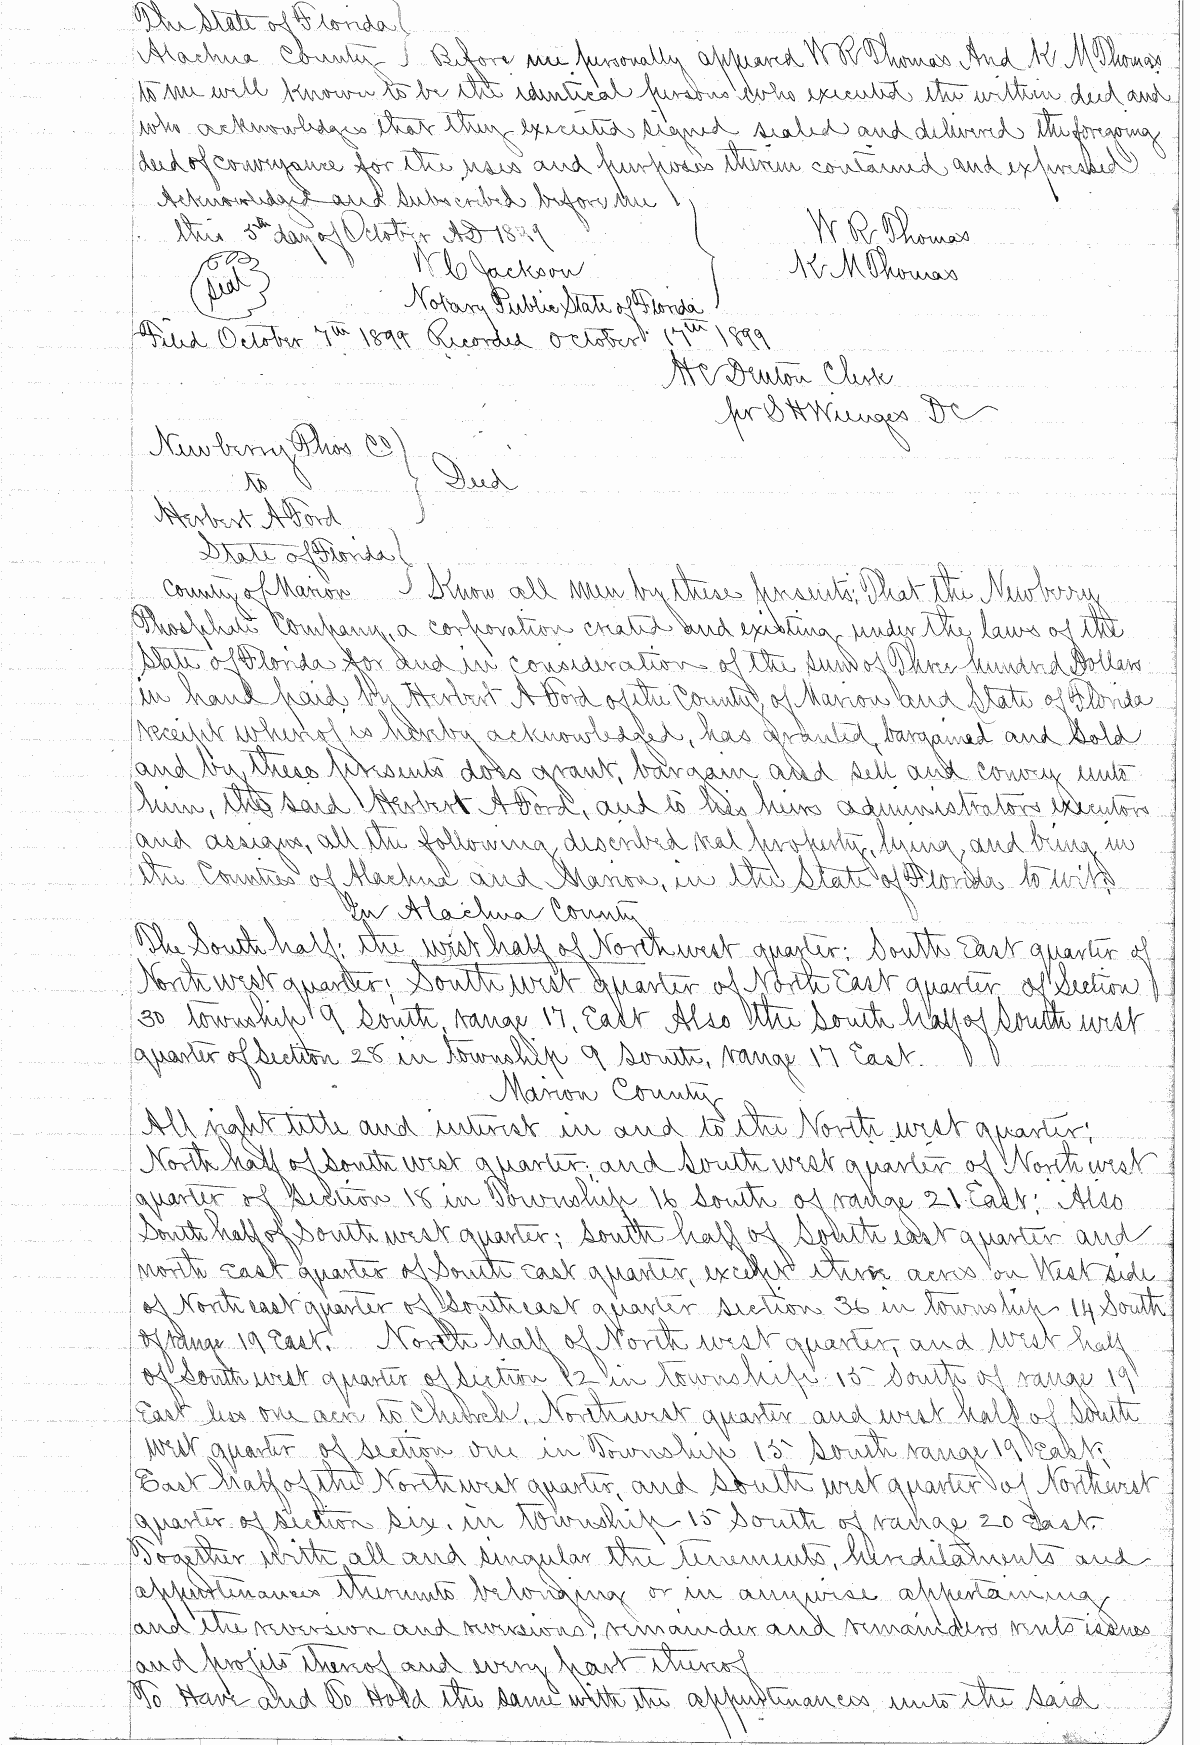 The State of Florida
Alachua County Before me personally appeared W R Thomas And K M Thomas
to me well known to be the identical persons who executed the within deed and
who acknowledges that they executed signed sealed and delivered the foregoing
deed of conveyance for the uses and purposes therein contained and expressed
Acknowledged and subscribed before me
this 5th day of October AD 1899
W R Thomas
K M Thomas
Seal
W C Jackson
Notary Public State of Florida
Filed October 7th 1899 Recorded October 17th 1899
H C Denton Clerk
pr S H Wienges DC
Newberry Phos Co
to Deed
Herbert A Ford
State of Florida
County of Marion Know all Men by these presents, That the Newberry
Phosphate Company, a corporation created and existing under the laws of the
State of Florida for and in consideration of the sum of Three hundred Dollars
in hand paid by Herbert A Ford of the County of Marion and State of Florida
receipt whereof is hereby acknowledged, has granted, bargained and Sold
and by these presents does grant, bargain and sell and convey unto
him, the said Herbert A Ford, and to his heirs administrators executors
and assigns, all the following described real property, lying and being in
the Counties of Alachua and Marion, in the State of Florida to wit,
In Alachua County
The South half; the west half of North west quarter; South East quarter of
North west quarter; South west quarter of North East quarter of Section
30 township 9 South, range 17, East Also the South half of South west
quarter of Section 28 in township 9 South, range 17 East.
Marion County
All right title and interest in and to the North west quarter;
North half of South west quarter; and South west quarter of North west
quarter of Section 18 in Township 16 South of range 21 East; Also
South half of South west quarter; South half of South east quarter and
north East quarter of South East quarter, except three acres on West side
of North east quarter of South east quarter section 36 in township 14 South
of range 19 East. North half of North west quarter, and West half
of South west quarter of Section 12 in township 15 South of range 19
East less one acre to Church. Northwest quarter and west half of South
west quarter of section one in Township 15 South range 19 East;
East half of the Northwest quarter, and South west quarter of Northwest
quarter of section six. in township 15 South of range 20 East.
Together with all and singular the tenements, hereditaments and
appurtenances thereunto belonging or in anywise appertaining
and the reversion and reversions, remainder and remainders rents issues
and profits thereof and every part thereof
To Have and To Hold the same with the appurtenances unto the said